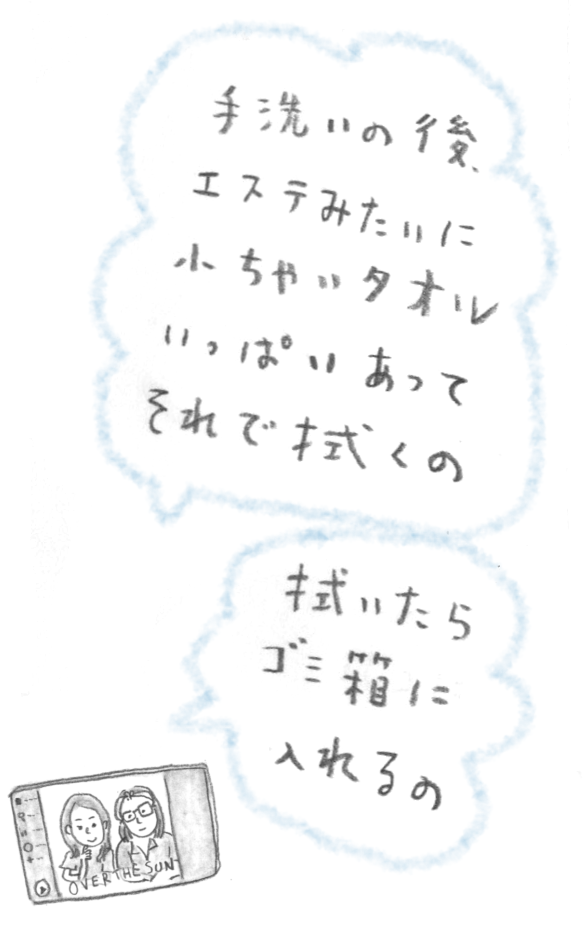 手洗いの後、
エステみたいに
小ちゃいタオル
いっぱいあって
それで拭くの
拭いたら
ゴミ箱に
入れるの
OVER THE SUN